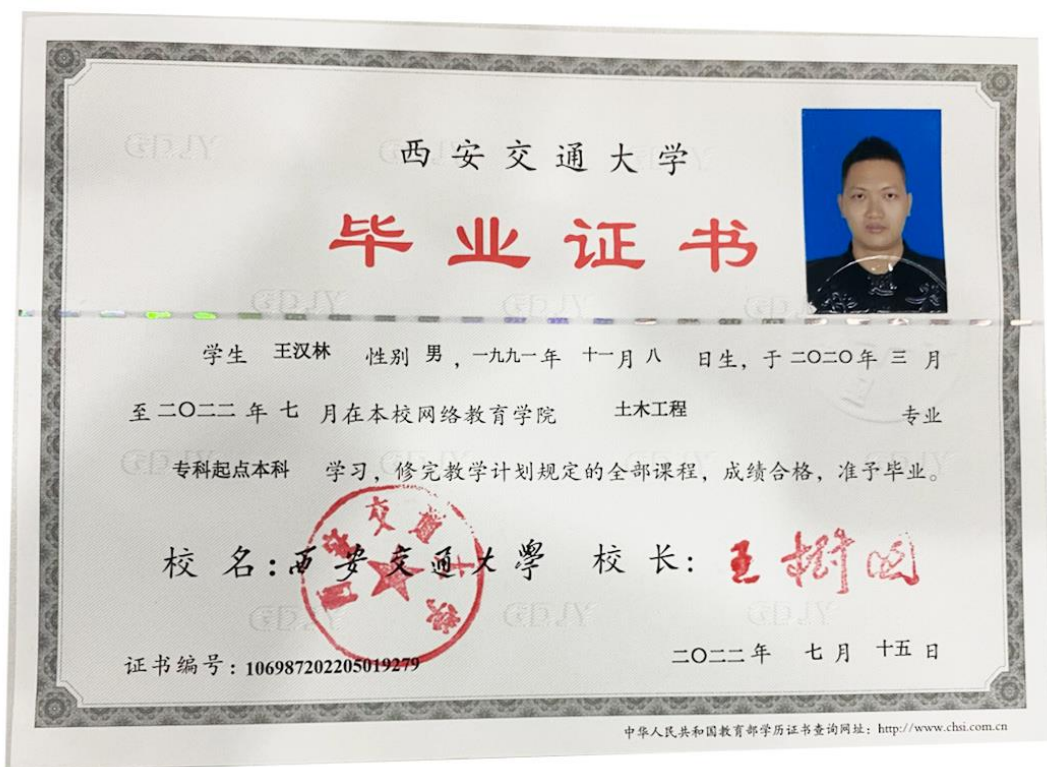 西安交通大学
毕业证书
学生 王汉林 性别 男 ，一九九一年 十一月 八 日生，于 二〇二〇年 三 月
至二〇二二 年 七 月在本校网络教育学院 土木工程 专业
专科起点本科 学习，修完教学计划规定的全部课程，成绩合格，准予毕业。
校 名：西安交通大學 校 长：王树国
证书编号：106987202205019279
二〇二二年 七月 十五 日
中华人民共和国教育部学历证书查询网址：http://www.chsi.com.cn
GDJY